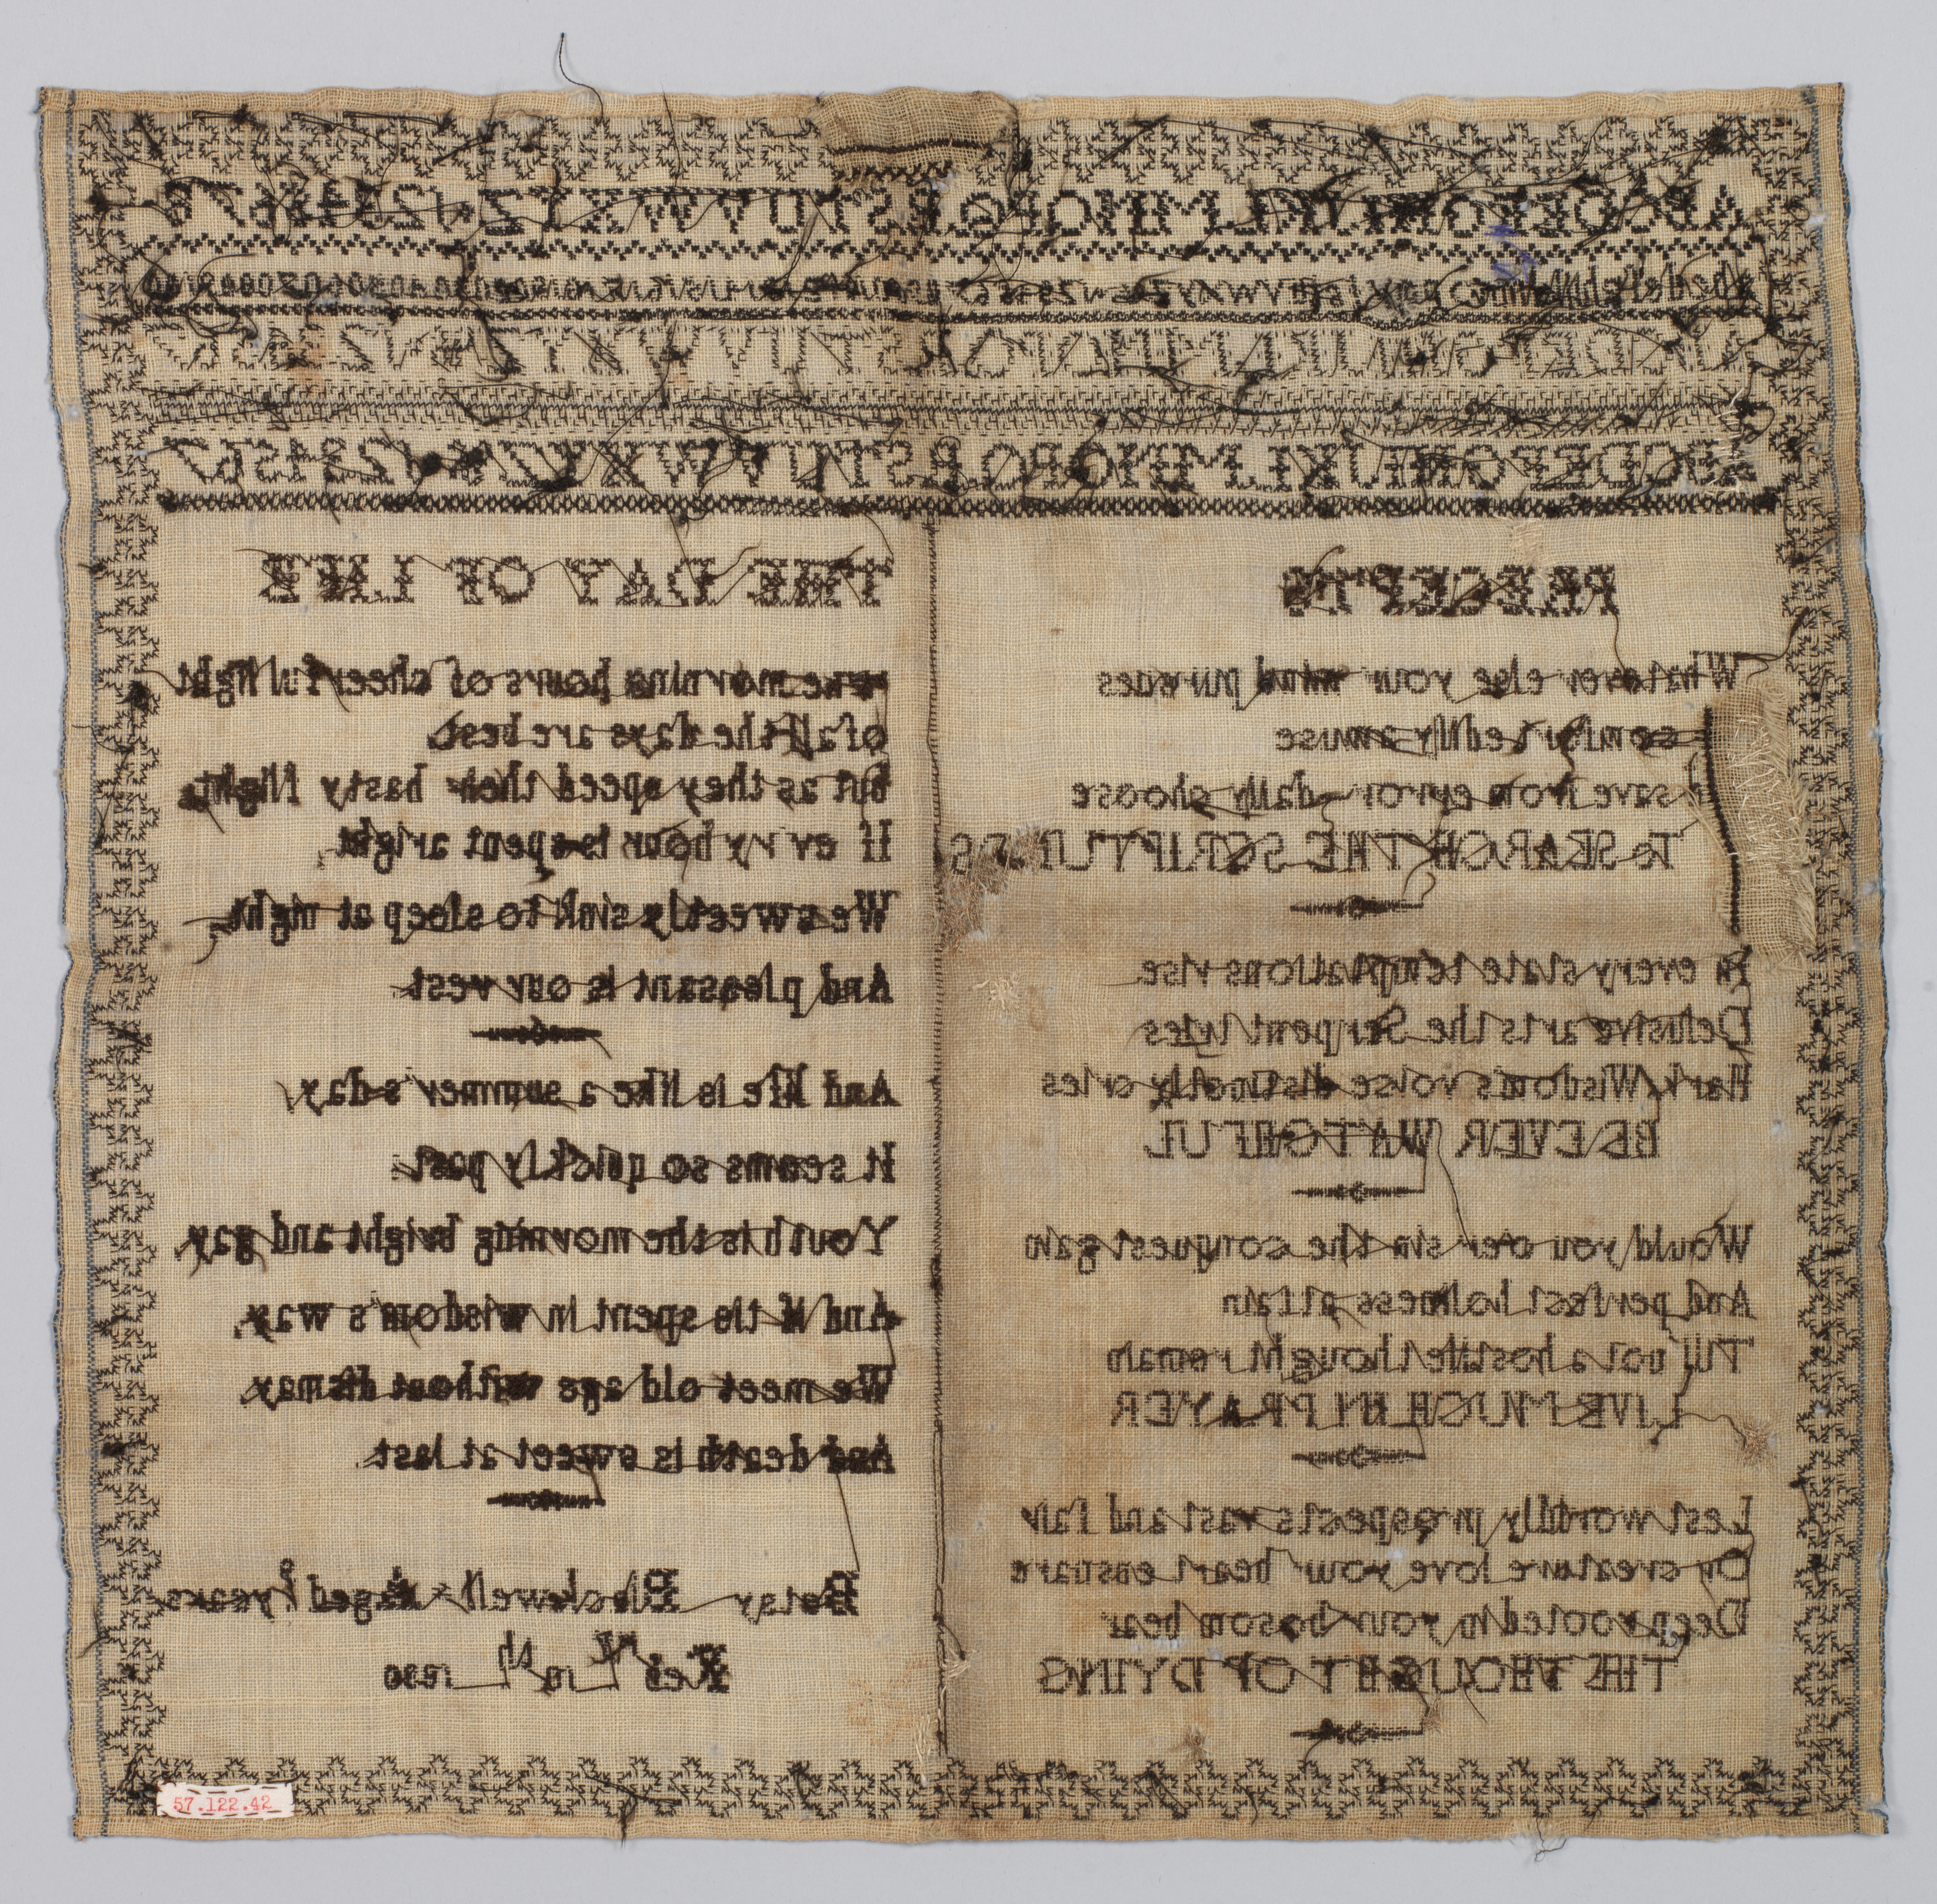 ABCDEFGHIJKLMNOPQRSTUVWXYZ 12345678
ABCDEFGHIJKLMNOPQRSTUVWXYZ 1234567
PRECEPTS
Whatever else your mind pursues
amuse
save from error daily choose
To SEARCH THE SCRIPTURES
In every state temptations rise
Delusive arts the Serpent tries
Hark Wisdoms voise distinctly cries
BE EVER WATCHFUL
Would you over sin the conquest gain
And perfect holiness attain
Till not a hostile thought remain
LIVE MUCH IN PRAYER
Lest worldly prospects vast and fair
Or creature love your heart ensnare
Deep rooted in your bosom bear
THE THOUGHT OF DYING
THE DAY OF LIFE
The morning hours of cheerful light
of all the days are best
but as they speed their hasty flight
If every hour is spent aright
We sweetly sink to sleep at night
And pleasant is our rest
And life is like a summer s day
It seems so quickly past
Youth is the morning bright and gay
And if tis spent in wisdom s way
We meet old age without dismay
And death is sweet at last
Betsy Blackwell Aged 8 years
10th 1830
57.122.42